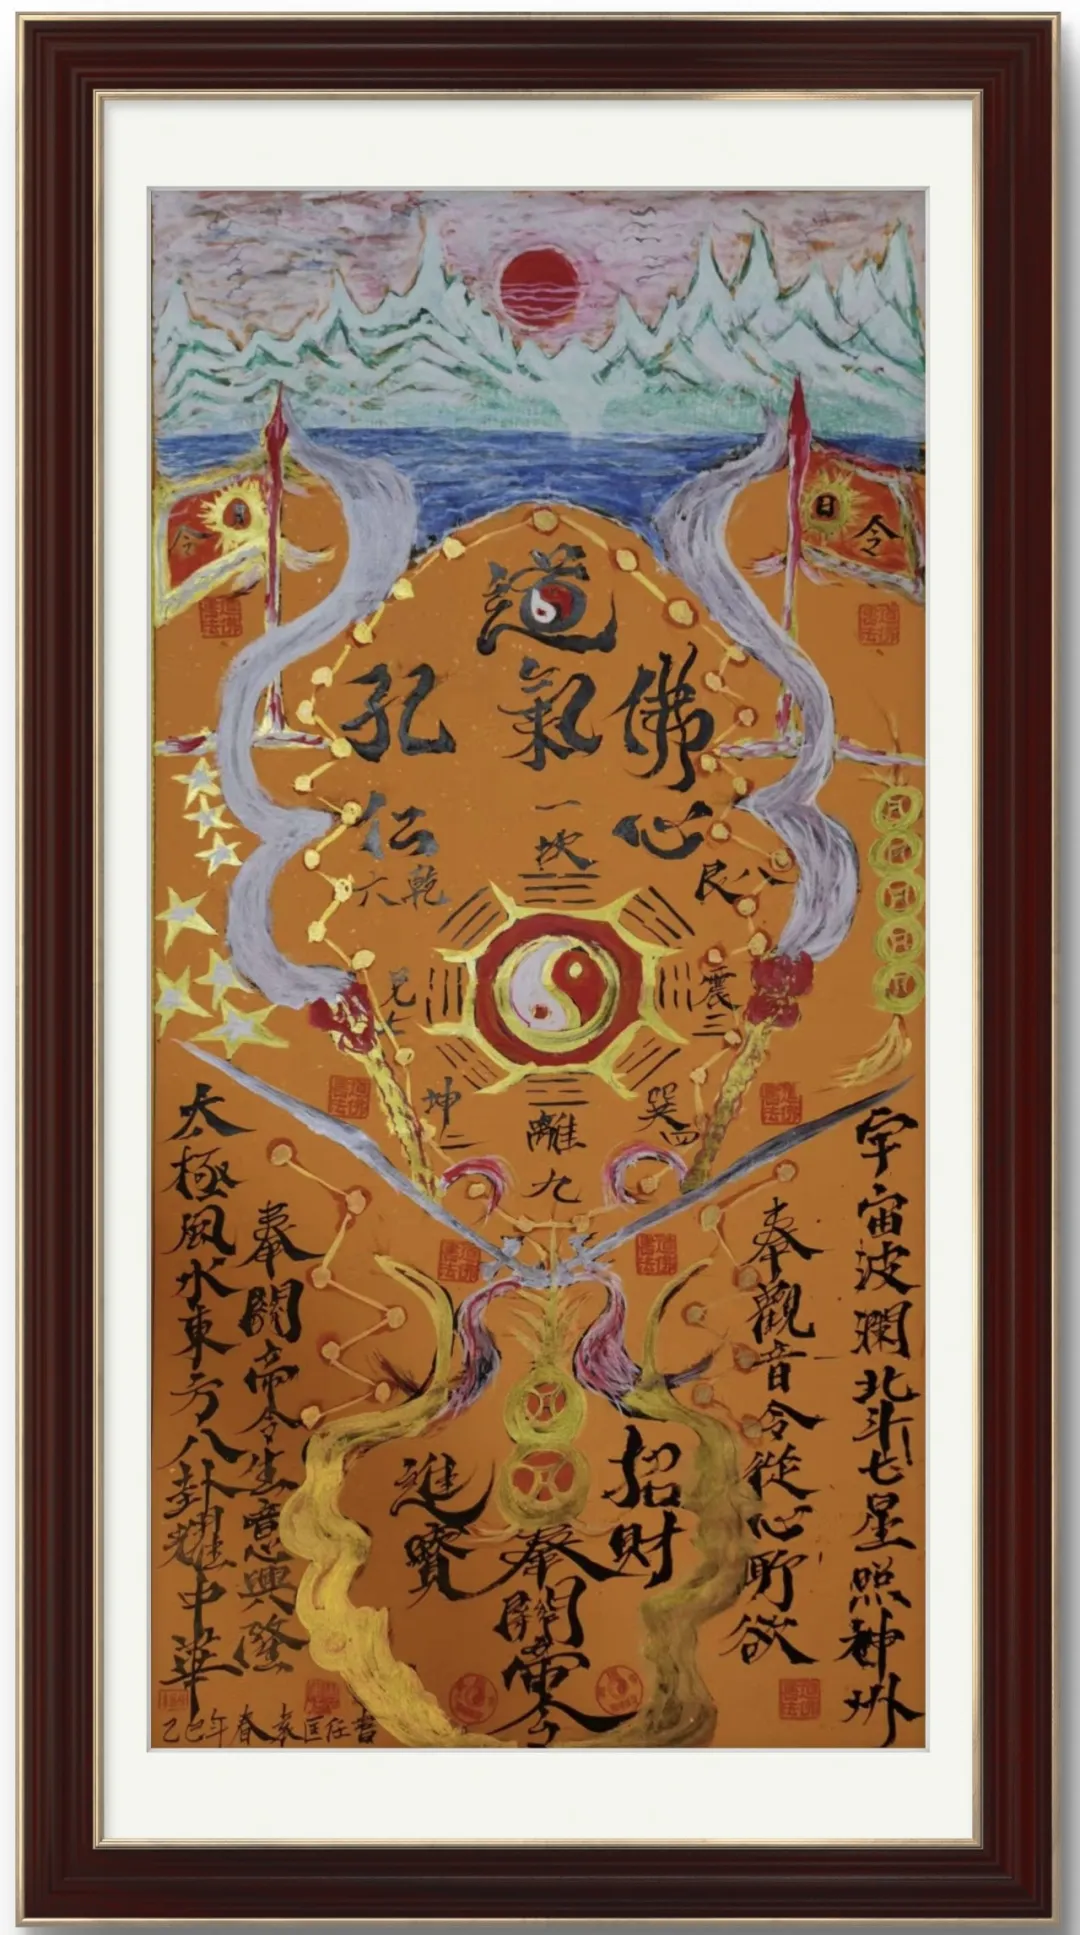 月令
日令
道
孔 氣 佛
仁 心
一坎
乾六
艮八
兑七
震三
坤二
巽四
離九
宇宙波瀾北斗七星照神州
奉觀音令從心所欲
招財
進寶
奉關帝令
奉關帝令生意興隆
太極風水東方八卦耀中華
乙巳年春